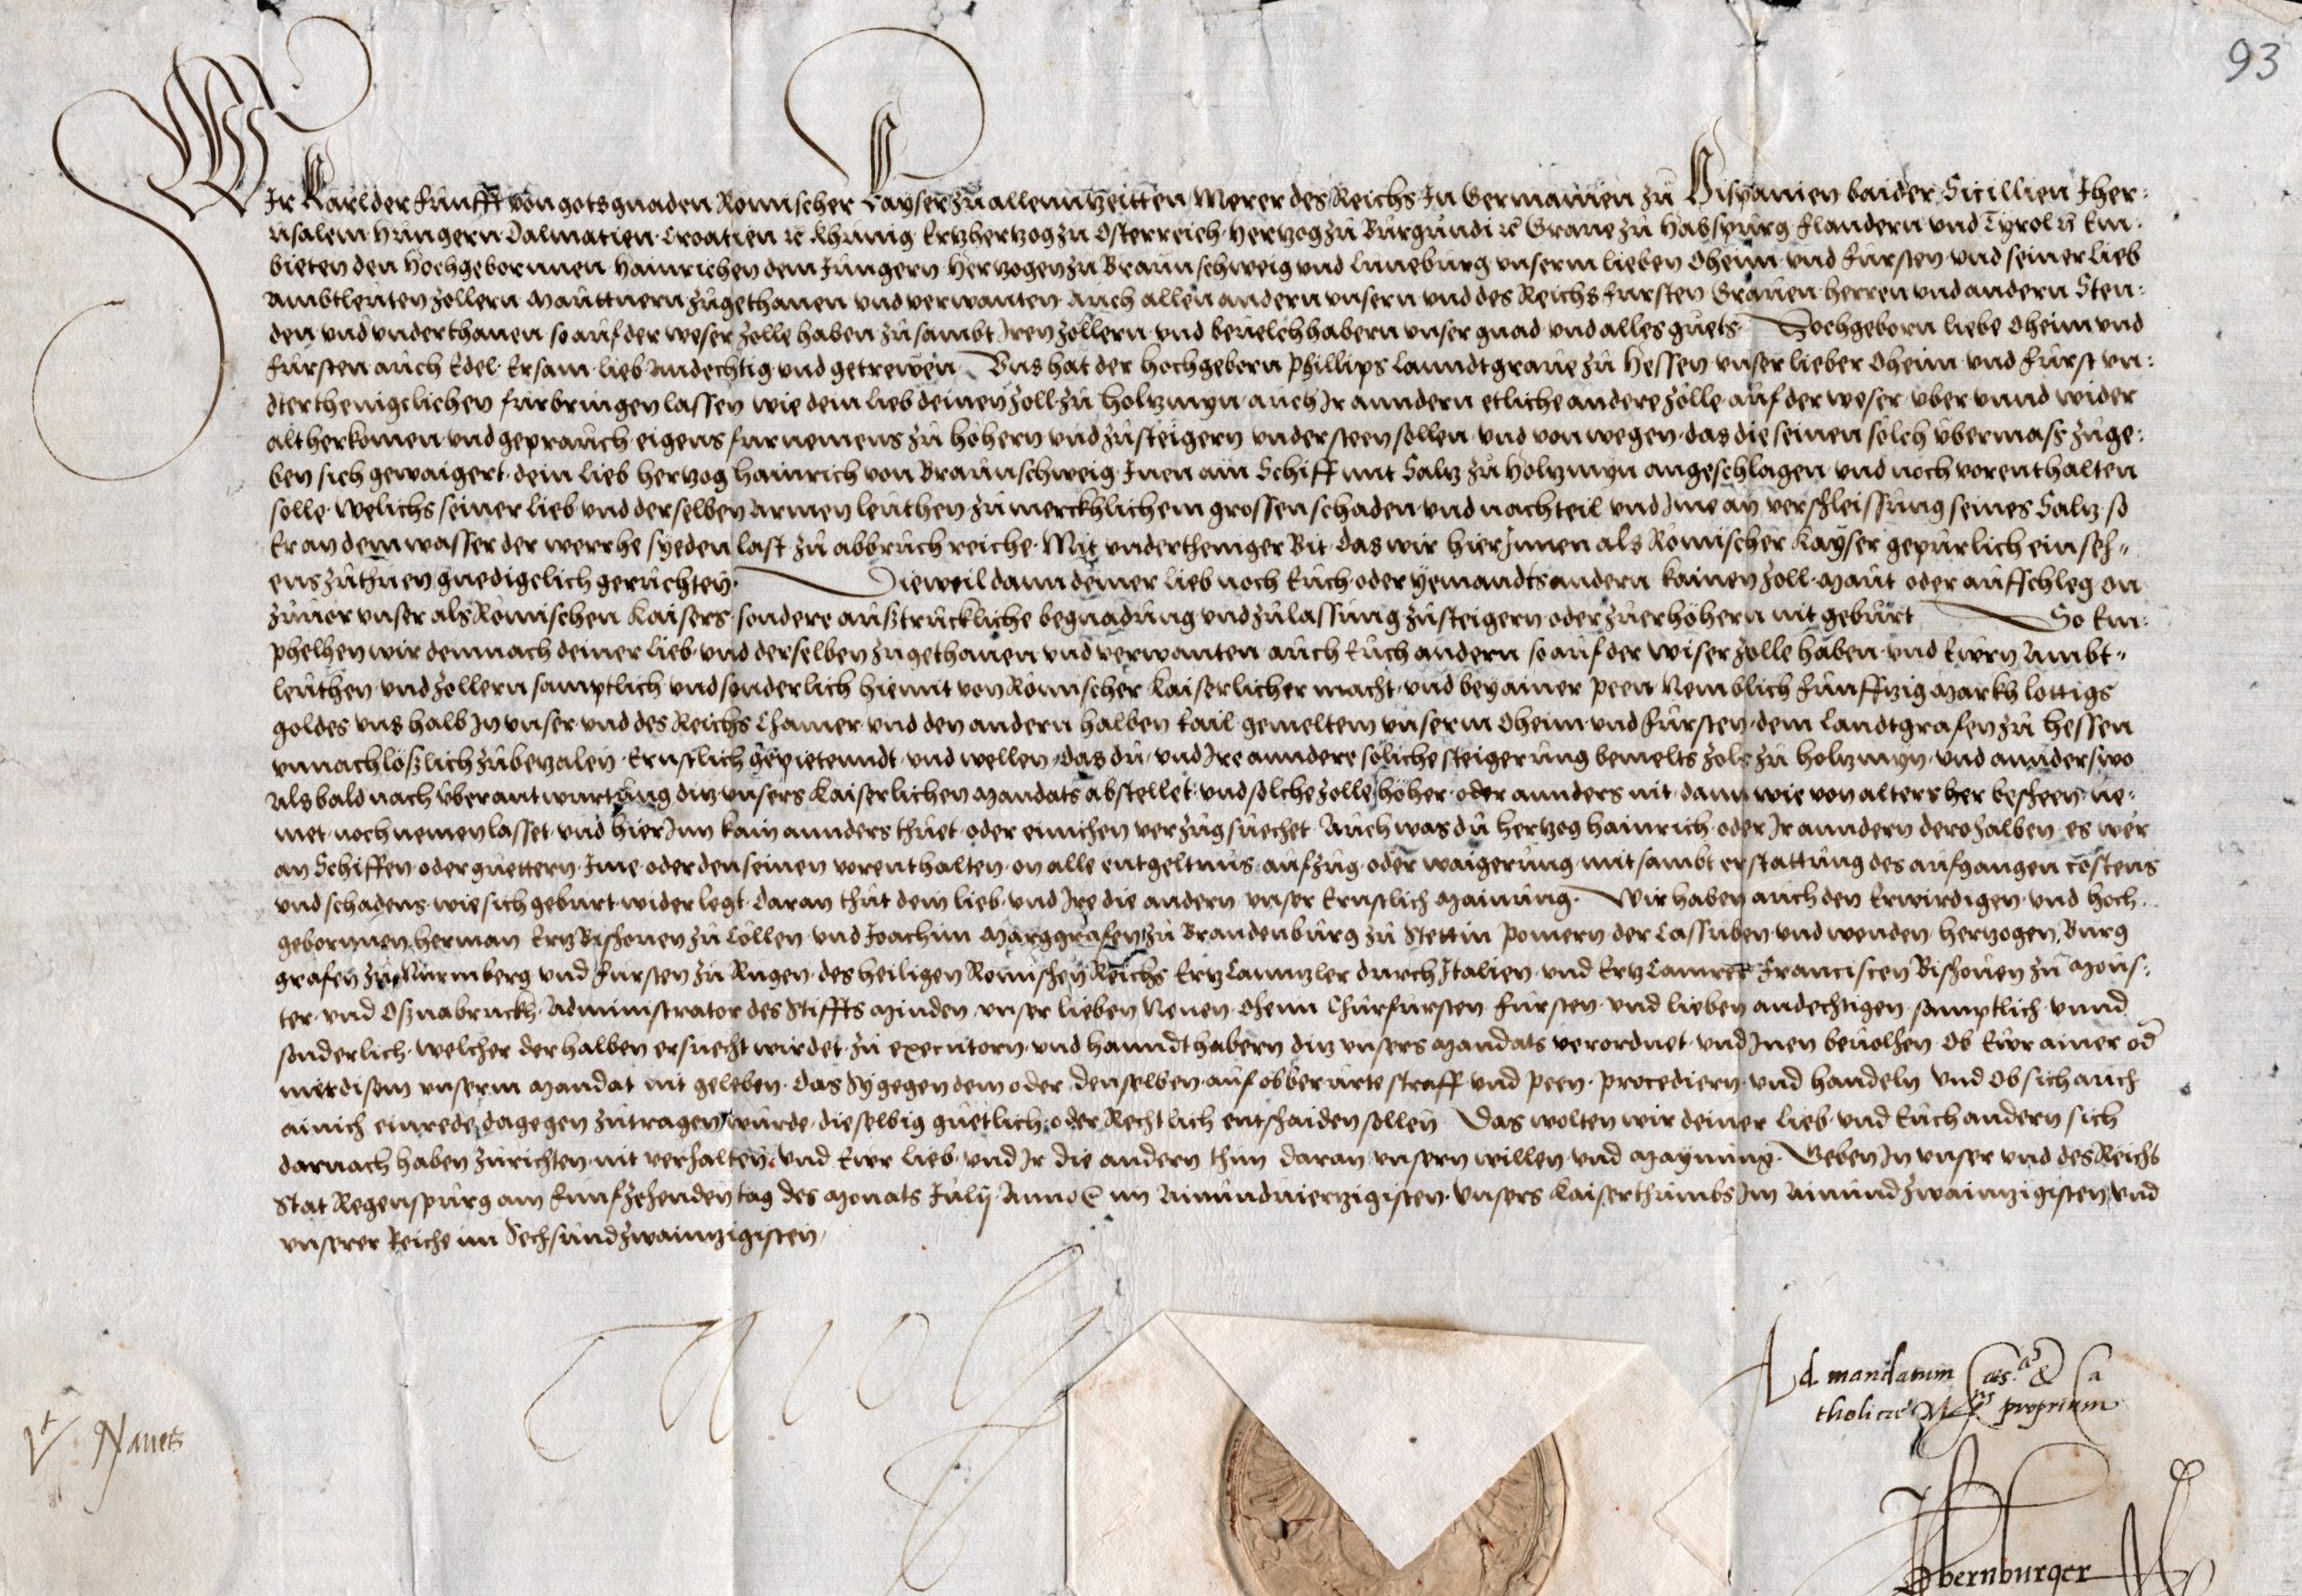 93
Wir Karl der Fünfft von gots gnaden Romischer Kayser zů allenn tzeitten Merer des Reichs In Germanien zů Hispanien baider Sicillien Jher:
usalem Hungern Dalmatien Croatien ꝛc Khunig Ertzhertzog zů Osterreich Hertzog zů Burgundi ꝛc Graue zů Habspurg Flandern und Tyrol ꝛc Em:
bieten den Hochgebornnen Hainrichen dem Jungern Hertzogen zů Braunschweig vnd Luneburg vnserm lieben Oheim vnd Fursten vnd seiner lieb
Ambtleuten Zollern Mauttnern zugethanen vnd verwanten auch allen andern vnsern vnd des Reichs Fursten Grauen Herren vnd andern Sten:
den vnd vnderthanen so auf der Weser Zolle haben zusambt Iren Zollern vnd beuelchhabern vnser gnad vnd alles guets Hochgeborn liebe Oheim vnd
Fursten auch Edel Ersam lieb Andechtig vnd getrewen Vns hat der Hochgeborn Phillips Lanndtgraue zů Hessen vnser lieber Oheim vnd Furst vn:
dterthenigclichen furbringen lassen wie dem lieb deinen Zoll zů Holtzmyn auch Ir anndern etliche andere Zolle auf der Weser vber vnnd wider
alt herkomen vnd geprauch eigens furnemens zů höhern vnd zusteigern vndersteen sollen vnd von wegen das die seinen solch vbermass zuge:
ben sich gewaigert dein lieb Hertzog Hainrich von Braunschweig Inen ain Schiff mit Saltz zů Holtzmyn angeschlagen vnd noch vorenthalten
solle Welichs seiner lieb vnd derselben Armen leuthen zů merckhlichem grossen schaden vnd nachteil vnd Ime an verschleissung seines Saltz so
Er an dem wasser der werrhe syeden last zů abbruch reiche Mit vndertheniger Bit das wir hierInnen als Römischer Kayser gepurlich einseh„
ens zuthuen gnedigclich geruchten Dieweil dann deiner lieb noch Euch oder yemandts andern kainen Zoll Maut oder aufschleg on
zuuor vnser als Romischen Kaisers sondere außtruckliche begnadung vnd zulassung zusteigern oder zuerhöhern nit geburt So Em:
phelhen wir demnach deiner lieb vnd derselben zugethanen vnd verwanten auch Euch andern so auf der Wiser Zolle haben vnd Ewrn Ambt„
leuthen vnd Zollern samptlich vnd sonderlich hiemit von Römischer Kaiserlicher macht vnd bey ainer peen Nemblich Funfftzig Markh lottigs
goldes vns halb In vnser vnd des Reichs Chamer vnd den andern halben tail gemeltem vnserm Oheim vnd Fursten dem Landtgrafen zů Hessen
vnnachlößlich zubetzalen Ernstlich gepietenndt vnd wellen das du vnd Ire anndere soliche steigerung bemelts Zols zů Holtzmyn vnd annderswo
Alsbald nach vberantwurtung ditz vnsers Kaiserlichen Mandats abstellet vnd solche Zolle höher oder annders nit dann wie von alters her bescheen ne„
met noch nemen lasset vnd hierInn kain annders thuet oder einichen verzug suechet Auch was du Hertzog Hainrich oder Ir anndern derohalben es wer
an Schiffen oder guettern Ime oder den seinen vorenthalten on alle entgeltnus aufzug oder waigerung mit sambt erstattung des aufgangen costens
vnd schadens wie sich geburt widerlegt daran thut dein lieb vnd Ire die andern vnser Ernstlich Mainung Wir haben auch den Erwirdigen vnd Hoch
gebornnen Herman Ertzbischouen zů Cöllen vnd Joachim Marggrafen zů Brandenburg zů Stettin Pomern der Cassuben vnd Wenden Hertzogen Burg
grafen zů Nurmberg vnd Fursten zů Rugen des heiligen Römischen Reichs Ertz Canntzler durch Italien vnd Ertz Camrer Franciscen Bischouen zů Mons:
ter vnd Oßnabruckh Administrator des Stiffts Minden vnser lieben Neuen Oheim Churfursten Fursten vnd lieben andechtigen samptlich vnnd
sonderlich welcher derhalben ersuecht wirdet zů executorn vnd hanndthabern ditz vnsers Mandats verordnet vnd Inen beuolhen Ob Ewr ainer od
mer disem vnserm Mandat nit geleben das Sy gegen dem oder denselben auf obberurte straff vnd peen procediern vnd handeln vnd Ob sich auch
ainich einrede dagegen zutragen wurde dieselbig guetlich oder Rechtlich entschaiden sollen Das wolten wir deiner lieb vnd Euch andern sich
darnach haben zurichten nit verhalten vnd Ewr lieb vnd Ir die andern thun daran vnsern willen vnd Maynung Geben In vnser vnd des Reichs
Stat Regenspurg am Funfzehenden tag des Monats Julij Anno ꝛc im Ainundviertzigisten vnsers Kaiserthumbs Im Ainundzwaintzigisten vnd
vnserer Reiche im Sechsundzwaintzigisten
Carolus
Ad mandatum Caes.ae & Ca
tholicae M.tis proprium
Vt Naues
Obernburger